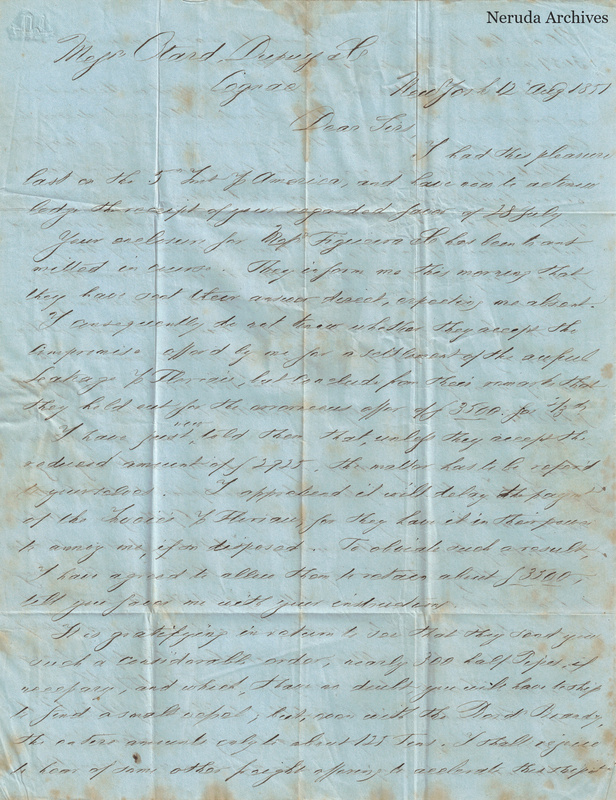 Neruda Archives
Messrs Otard, Dupuy & Co
Cognac
New York 12 Aug 1851
Dear Sirs,
I had this pleasure
last on the 5 Inst America, and have now to acknow
ledge the receipt of your regarded favor of 28 July
Your enclosure for Messrs Figueira & Co has been trans
mitted in course. They inform me this morning that
they have sent their answer direct, expecting me absent.
I consequently do not know whether they accept the
compromise offered by me for a settlement of the
leakage, but conclude from their remarks that
they hold out for the offer of $ 3500. for
I have just told them that, unless they accept the
reduced amount of $ 2925, the matter has to be referred
to yourselves. I apprehend it will delay the paymt
of the Invoices for they have it in their power
to annoy me, if so disposed. To obviate such a result,
I have agreed to allow them to retain about $ 3500,
till you favor me with your instructions
It is gratifying in return to see that they sent you
such a considerable order, nearly 300 half Pipes, if
necessary, and which, I have no doubt, you will have to ship
to find a small vessel, but, even with the Brandy
the entire amounts only to about 125 Tons. I shall rejoice
to hear of some other freight offering to accelerate this shipt